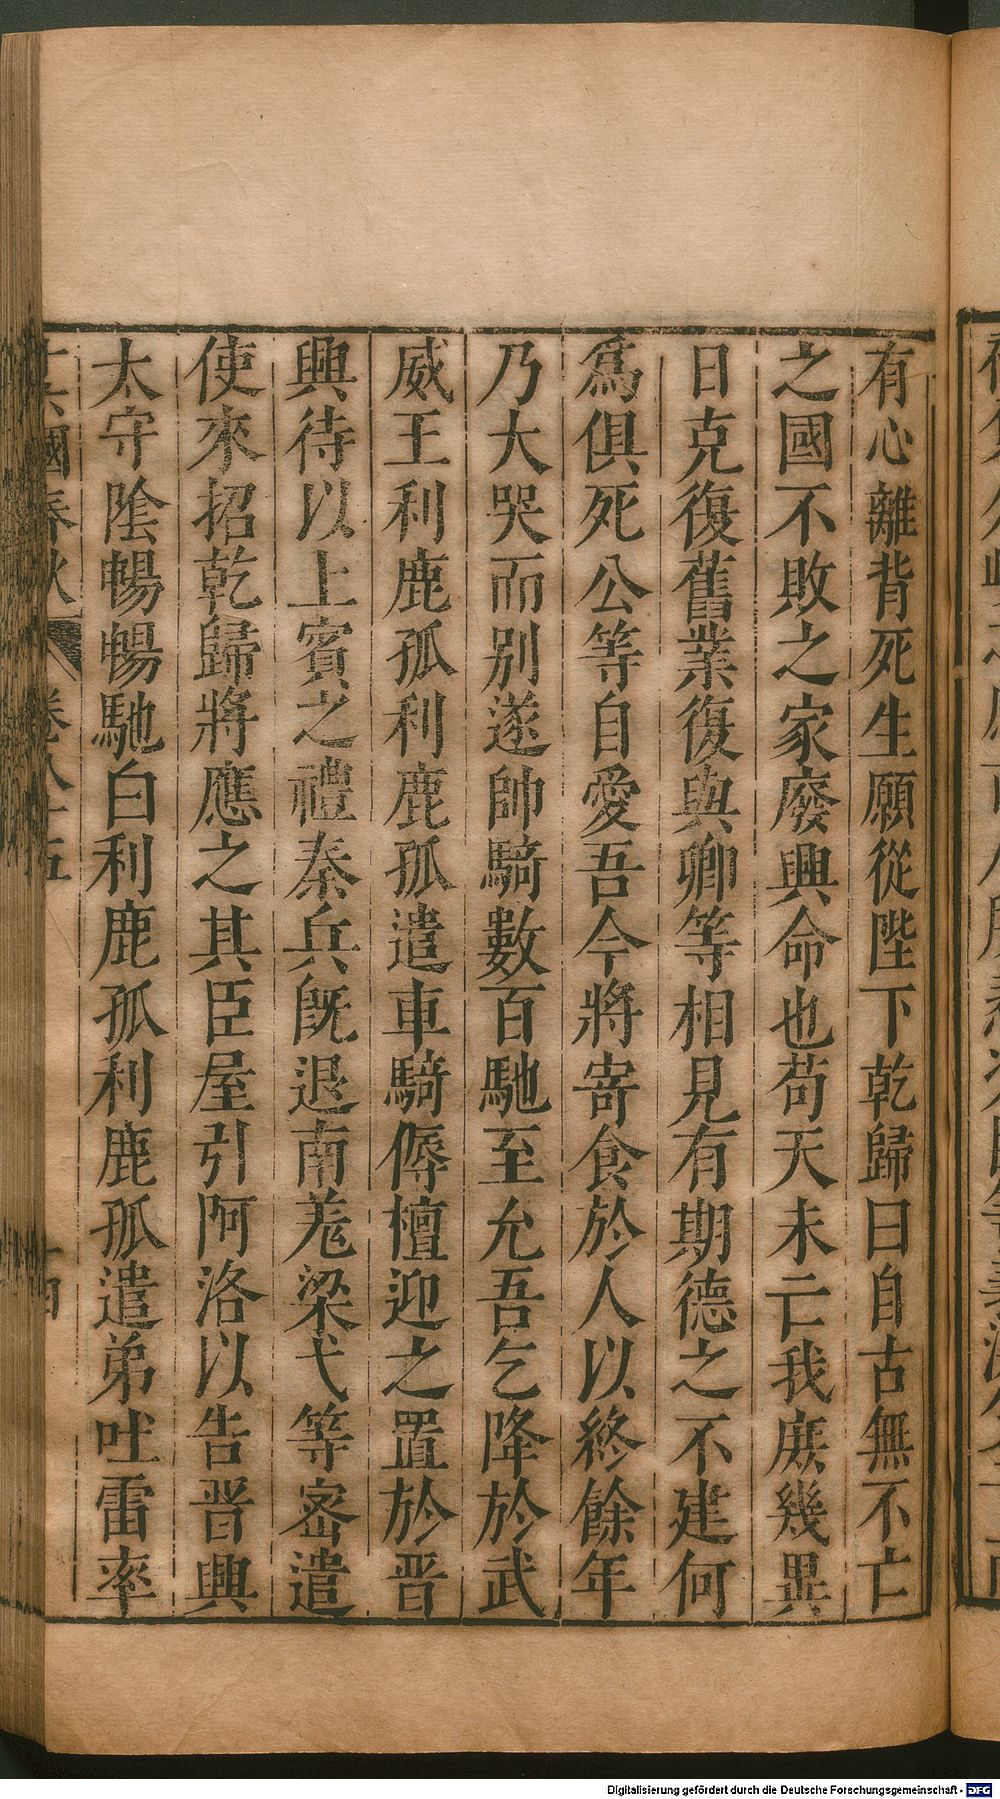 有心離背死生願從陛下乾歸曰自古無不亡
之國不敗之家廢興命也苟天未亡我庻幾異
日克復舊業復與卿等相見有期德之不建何
爲俱死公等自愛吾今將寄食於人以終餘年
乃大哭而别遂帥騎數百馳至允吾乞降於武
威王利鹿孤利鹿孤遣車騎傉檀迎之置於晉
興待以上賓之禮秦兵旣退南羗梁弋等密遣
使來招乾歸將應之其臣屋引阿洛以告晉興
太守陰暢暢馳白利鹿孤利鹿孤遣弟吐雷率
國春秋 卷八十五
Digitalisierung gefördert durch die Deutsche Forschungsgemeinschaft - DFG